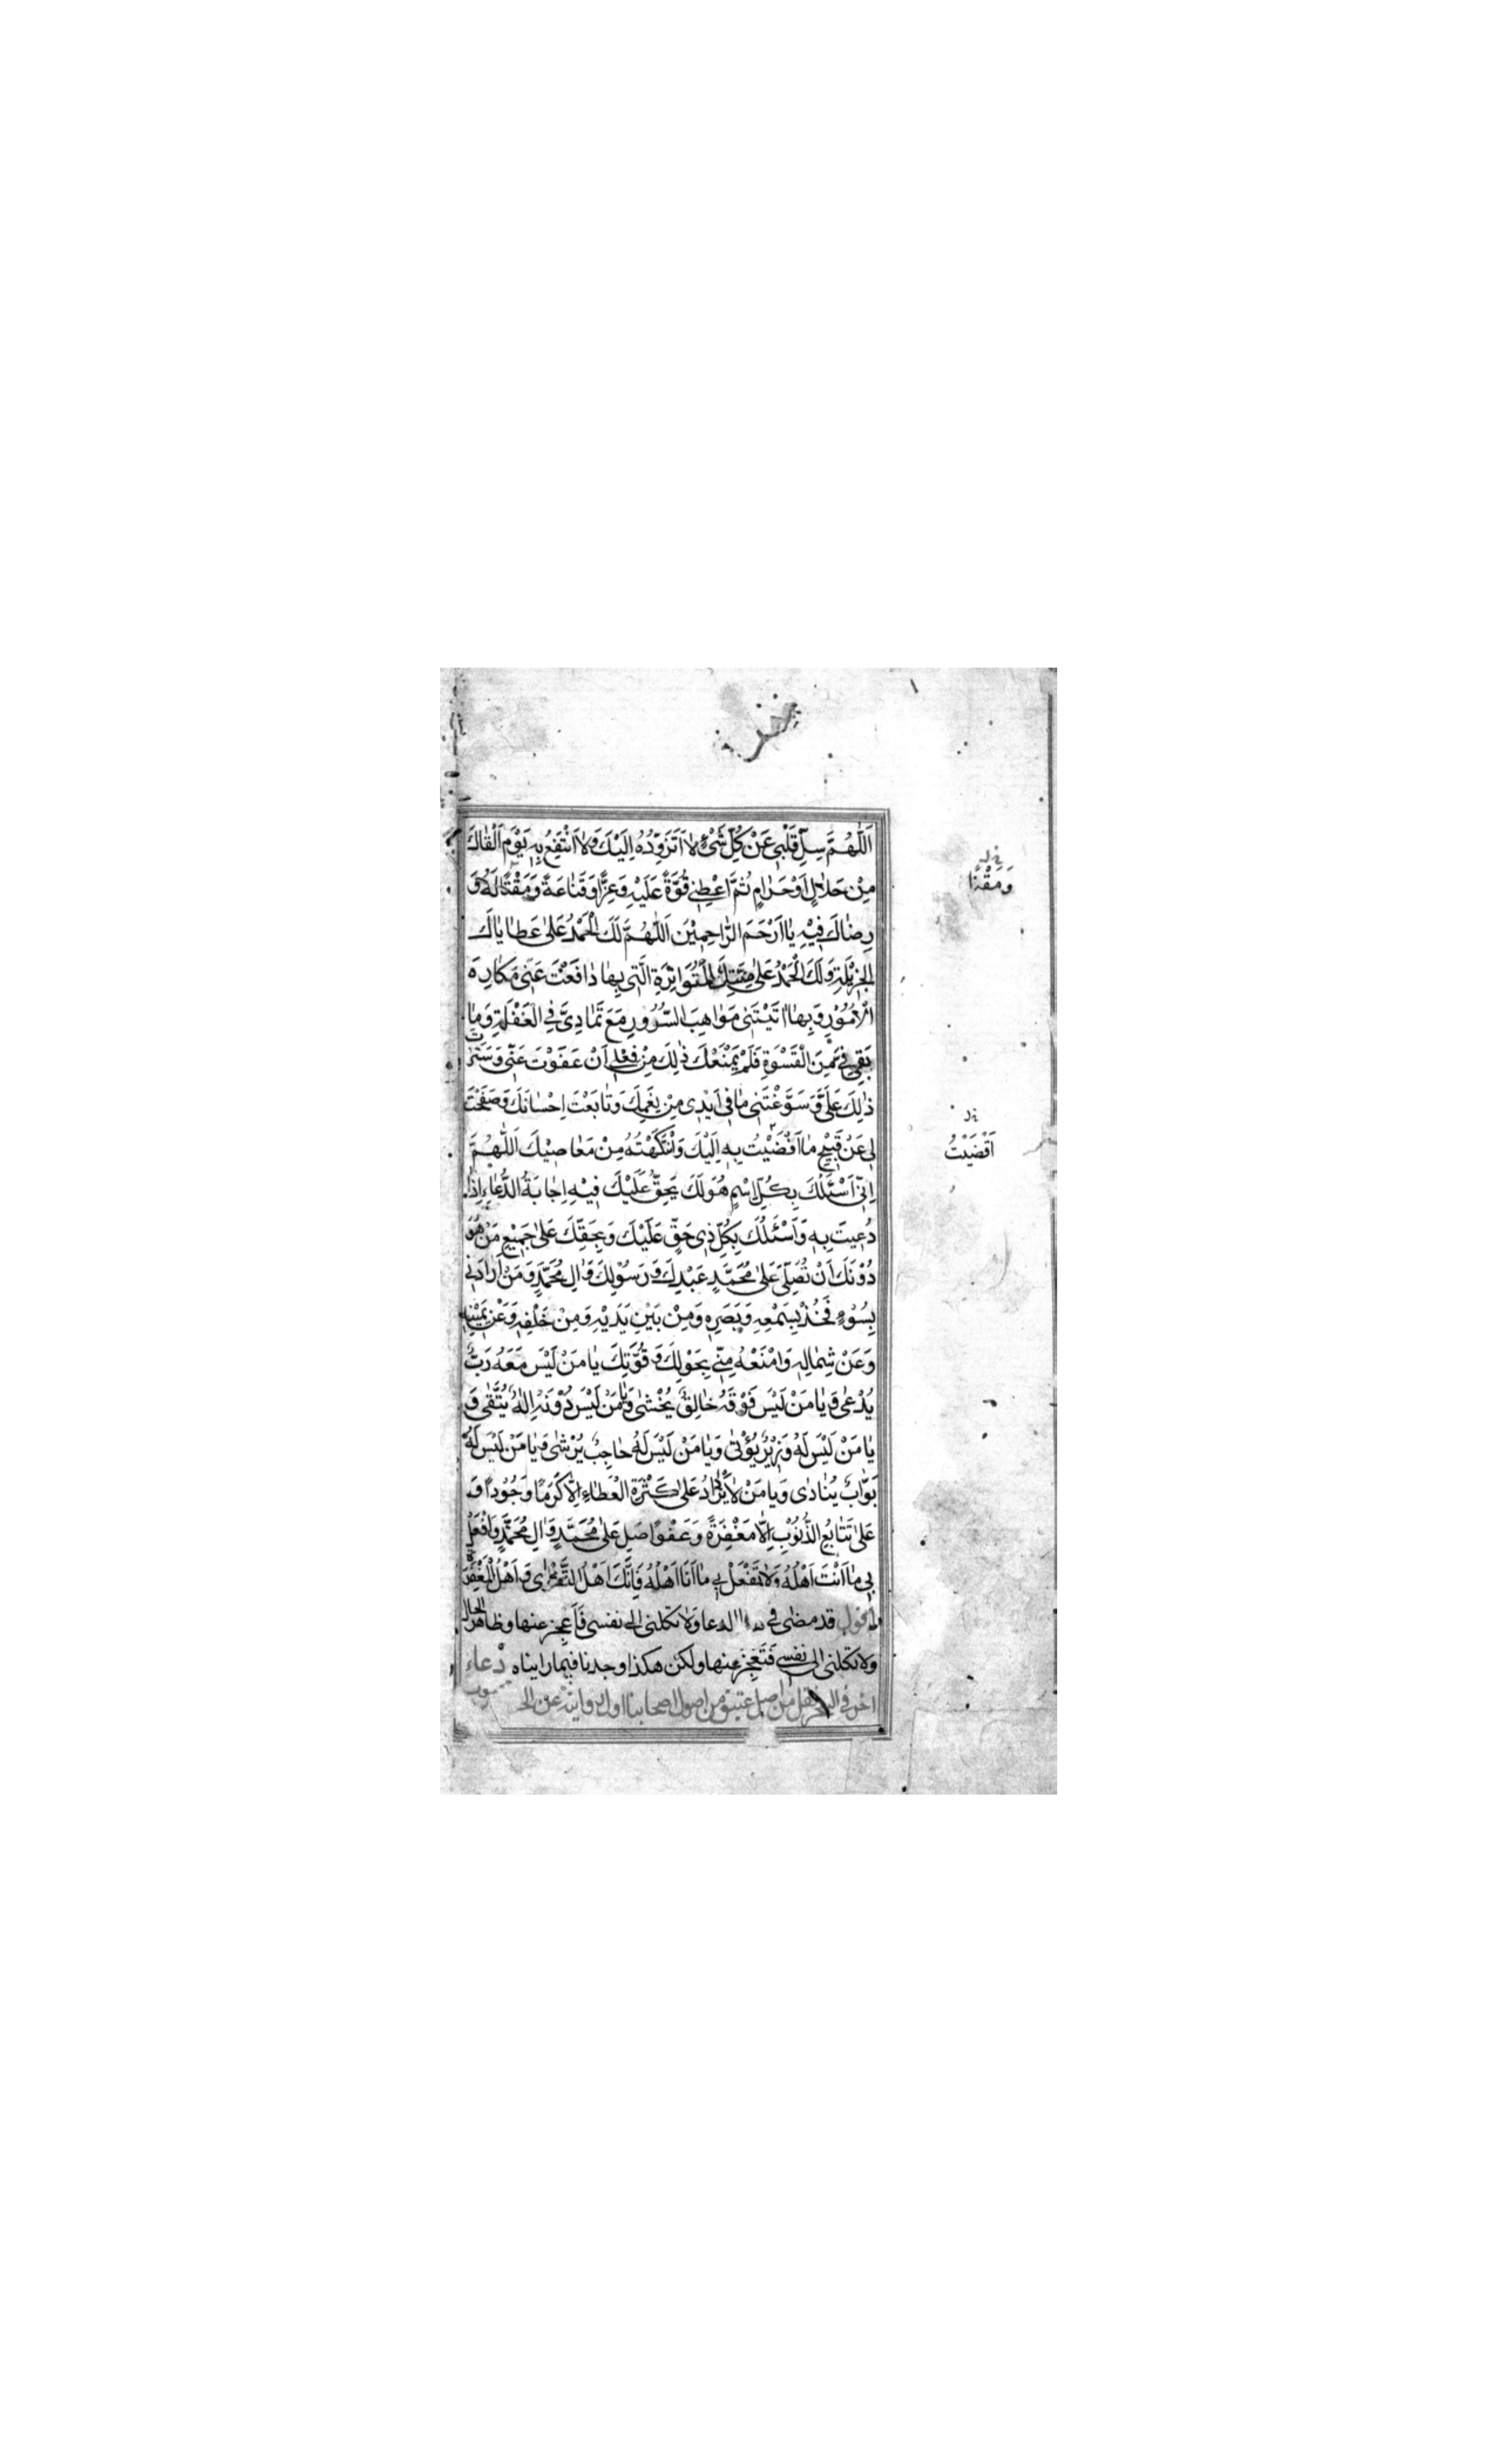 اَللّٰهُمَّ سَلِّ قَلْبِی عَنْ كُلِّ شَیْءٍ لَا اَتَزَوَّدُهُ اِلَيْكَ وَلَا اَنْتَفِعُ بِهٖ يَوْمَ اَلْقَاكَ
مِنْ حَلَالٍ اَوْ حَرَامٍ ثُمَّ اَعْطِنِی قُوَّةً عَلَيْهِ وَعِزًّا وَقَنَاعَةً وَمَقْتًا لَهُ وَ
رِضَاكَ فِيْهِ يَا اَرْحَمَ الرَّاحِمِيْنَ اَللّٰهُمَّ لَكَ الْحَمْدُ عَلٰی عَطَايَاكَ
الْجَزِيْلَةِ وَلَكَ الْحَمْدُ عَلٰی مِنَنِكَ الْمُتَوَاتِرَةِ الَّتِی بِهَا دَافَعْتَ عَنِّی مَكَارِهَ
الْاُمُوْرِ وَبِهَا اٰتَيْتَنِی مَوَاهِبَ السُّرُورِ مَعَ تَمَادِیَّ فِی الْغَفْلَةِ وَمَا
بَقِیَ فِیَّ مِنَ الْقَسْوَةِ فَلَمْ يَمْنَعْكَ ذٰلِكَ مِنْ فِعْلِی اَنْ عَفَوْتَ عَنِّی وَسَتَرْتَ
ذٰلِكَ عَلَیَّ وَسَوَّغْتَنِی مَا فِی اَيْدِی مِنْ نِعَمِكَ وَتَابَعْتَ اِحْسَانَكَ وَصَفَحْتَ
لِی عَنْ قَبِيْحِ مَا اَفْضَيْتُ بِهٖ اِلَيْكَ وَانْتَهَكْتُهُ مِنْ مَعَاصِيْكَ اَللّٰهُمَّ
اِنِّی اَسْئَلُكَ بِكُلِّ اسْمٍ هُوَ لَكَ يَحِقُّ عَلَيْكَ فِيْهِ اِجَابَةُ الدُّعَاءِ اِذَا
دُعِيتَ بِهٖ وَاَسْئَلُكَ بِكُلِّ ذِی حَقٍّ عَلَيْكَ وَبِحَقِّكَ عَلٰی جَمِيْعِ مَنْ هُوَ
دُوْنَكَ اَنْ تُصَلِّیَ عَلٰی مُحَمَّدٍ عَبْدِكَ وَرَسُوْلِكَ وَاٰلِ مُحَمَّدٍ وَمَنْ اَرَادَنِی
بِسُوْءٍ فَخُذْ بِسَمْعِهٖ وَبَصَرِهٖ وَمِنْ بَيْنِ يَدَيْهِ وَمِنْ خَلْفِهٖ وَعَنْ يَمِيْنِهٖ
وَعَنْ شِمَالِهٖ وَامْنَعْهُ مِنِّی بِحَوْلِكَ وَقُوَّتِكَ يَا مَنْ لَيْسَ مَعَهُ رَبٌّ
يُدْعٰی وَيَا مَنْ لَيْسَ فَوْقَهُ خَالِقٌ يُخْشٰی وَيَا مَنْ لَيْسَ دُوْنَهُ اِلٰهٌ يُتَّقٰی وَ
يَا مَنْ لَيْسَ لَهُ وَزِيْرٌ يُؤْتٰی وَيَا مَنْ لَيْسَ لَهُ حَاجِبٌ يُرْشٰی وَيَا مَنْ لَيْسَ لَهُ
بَوَّابٌ يُنَادٰی وَيَا مَنْ لَا يَزْدَادُ عَلٰی كَثْرَةِ الْعَطَاءِ اِلَّا كَرَمًا وَجُوْدًا وَ
عَلٰی تَتَابُعِ الذُّنُوْبِ اِلَّا مَغْفِرَةً وَعَفْوًا صَلِّ عَلٰی مُحَمَّدٍ وَاٰلِ مُحَمَّدٍ وَافْعَلْ
بِی مَا اَنْتَ اَهْلُهُ وَلَا تَفْعَلْ بِی مَا اَنَا اَهْلُهُ فَاِنَّكَ اَهْلُ التَّقْوٰی وَاَهْلُ الْمَغْفِرَةِ
اقول قد مضی فی الدعا وَلَا تكلنی الی نفسی فَاَعجز عنها وظاهر الحال
ولا تكلنی الی نفسی فَتَعْجِزَ عنها ولكن هكذا وجدنا فیما رایناه دُعاء
اخر فی نقل من اصل عتیق من اصول اصحابنا اول روایته عن
وَمَقْتًا
اَقْضَيْتُ